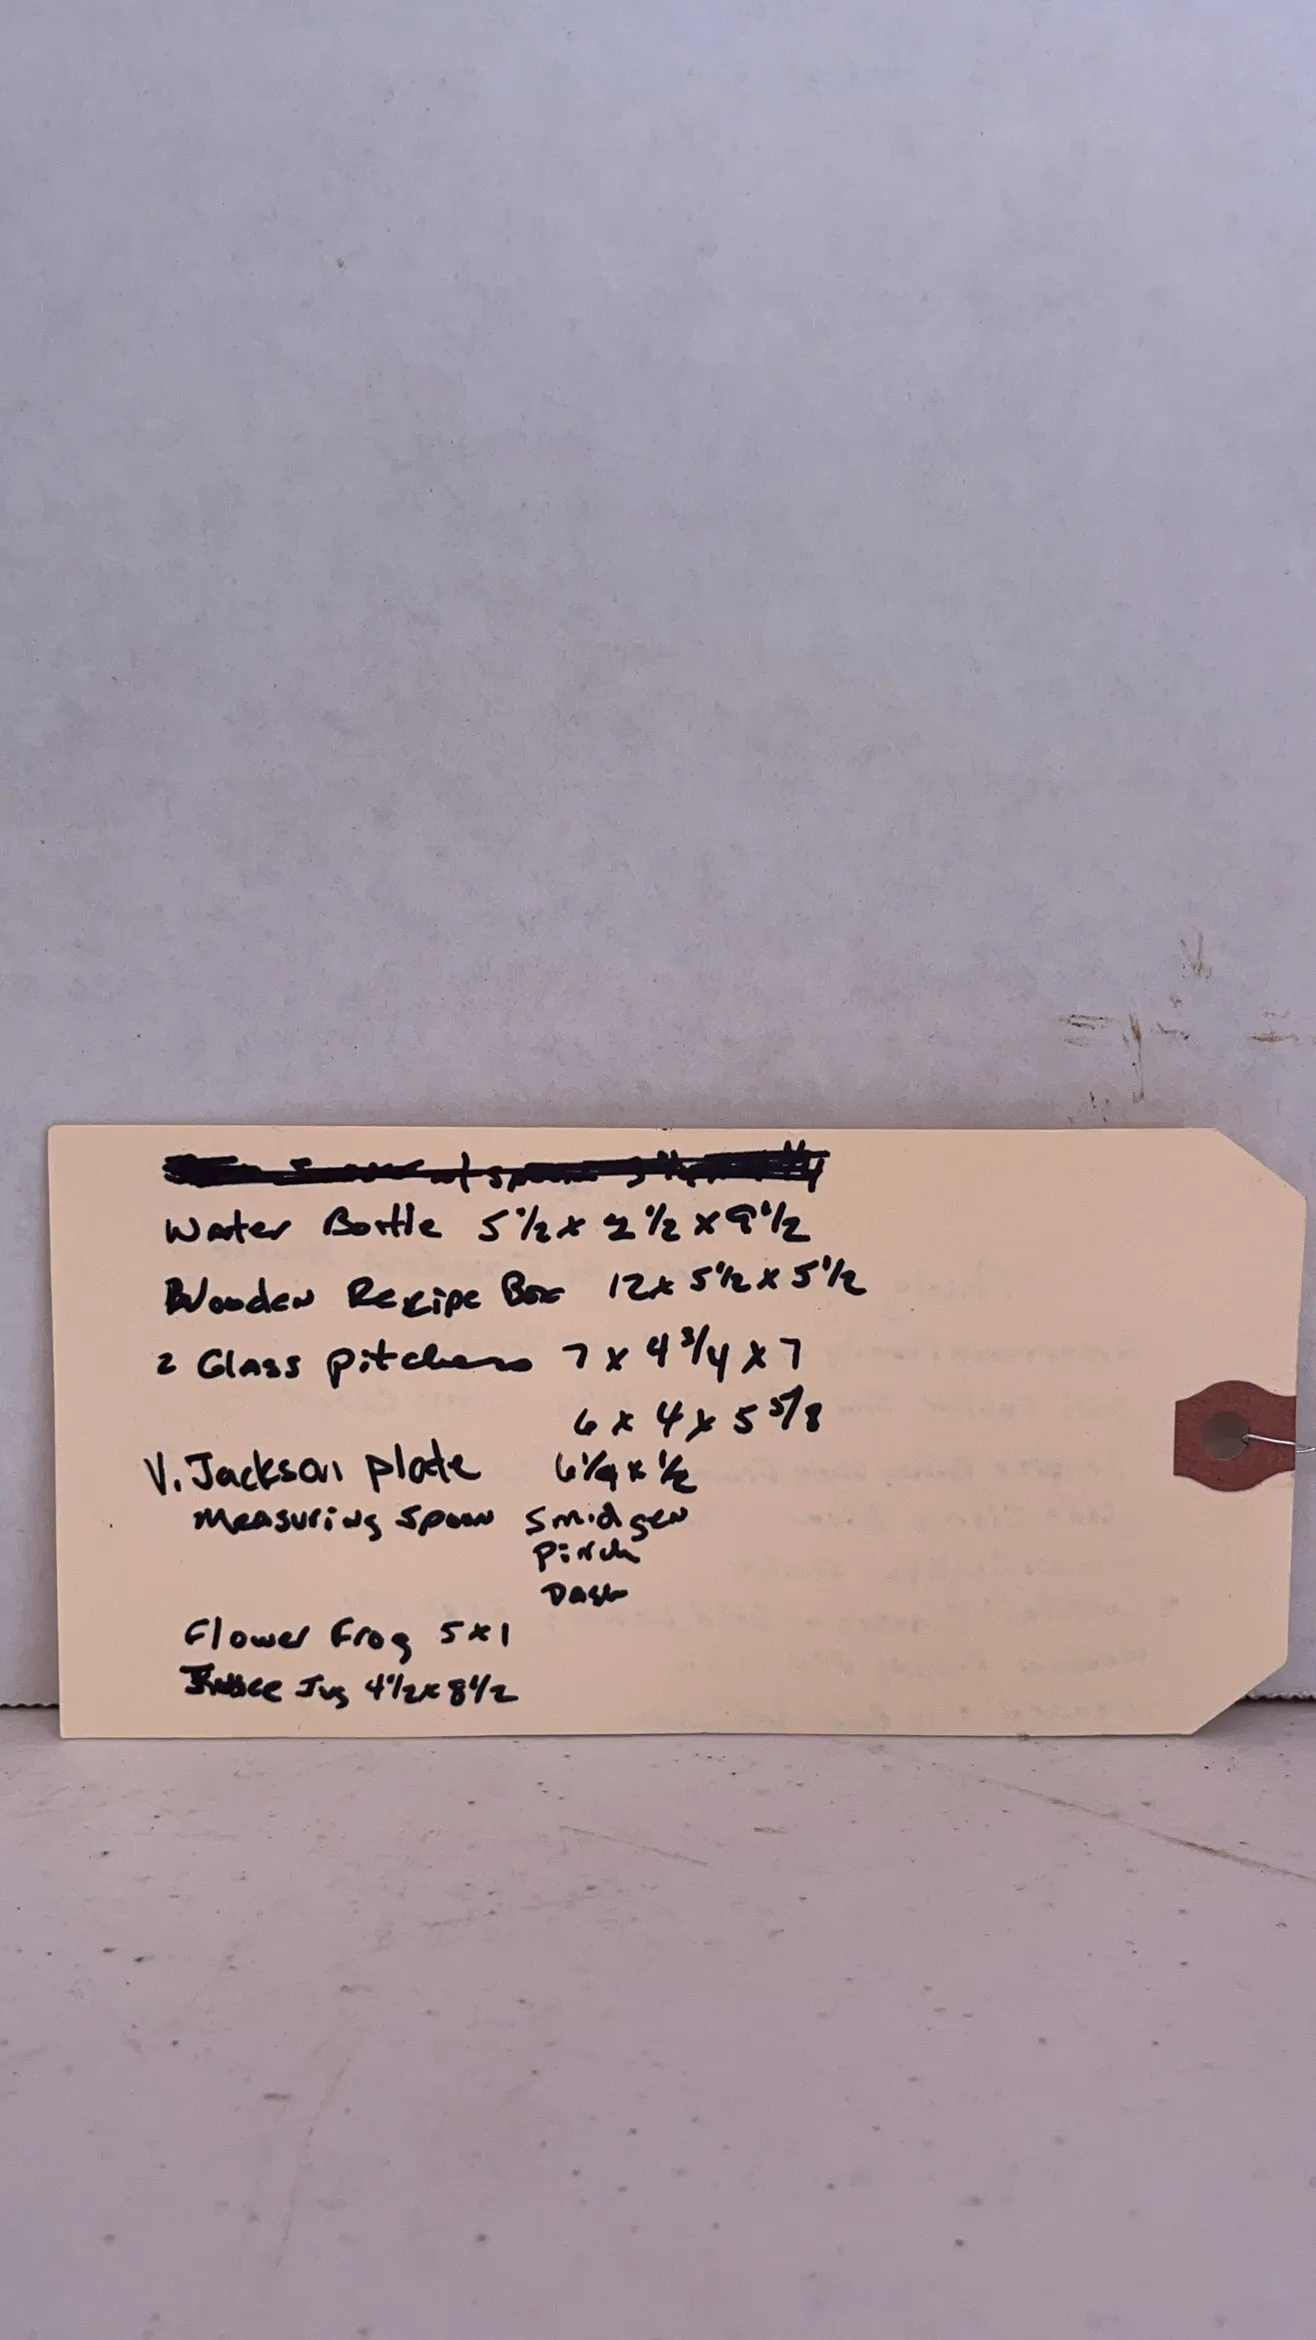 Water Bottle 5 1/2 x 2 1/2 x 9 1/2
Wooden Recipe Box 12 x 5 1/2 x 5 1/2
2 Glass pitchers 7 x 4 3/4 x 7
6 x 4 x 5 5/8
V. Jackson plate 6 1/4 x 1/2
Measuring Spoon Smidgen
Pinch
Dash
Flower Frog 5 x 1
Jug 4 1/2 x 8 1/2